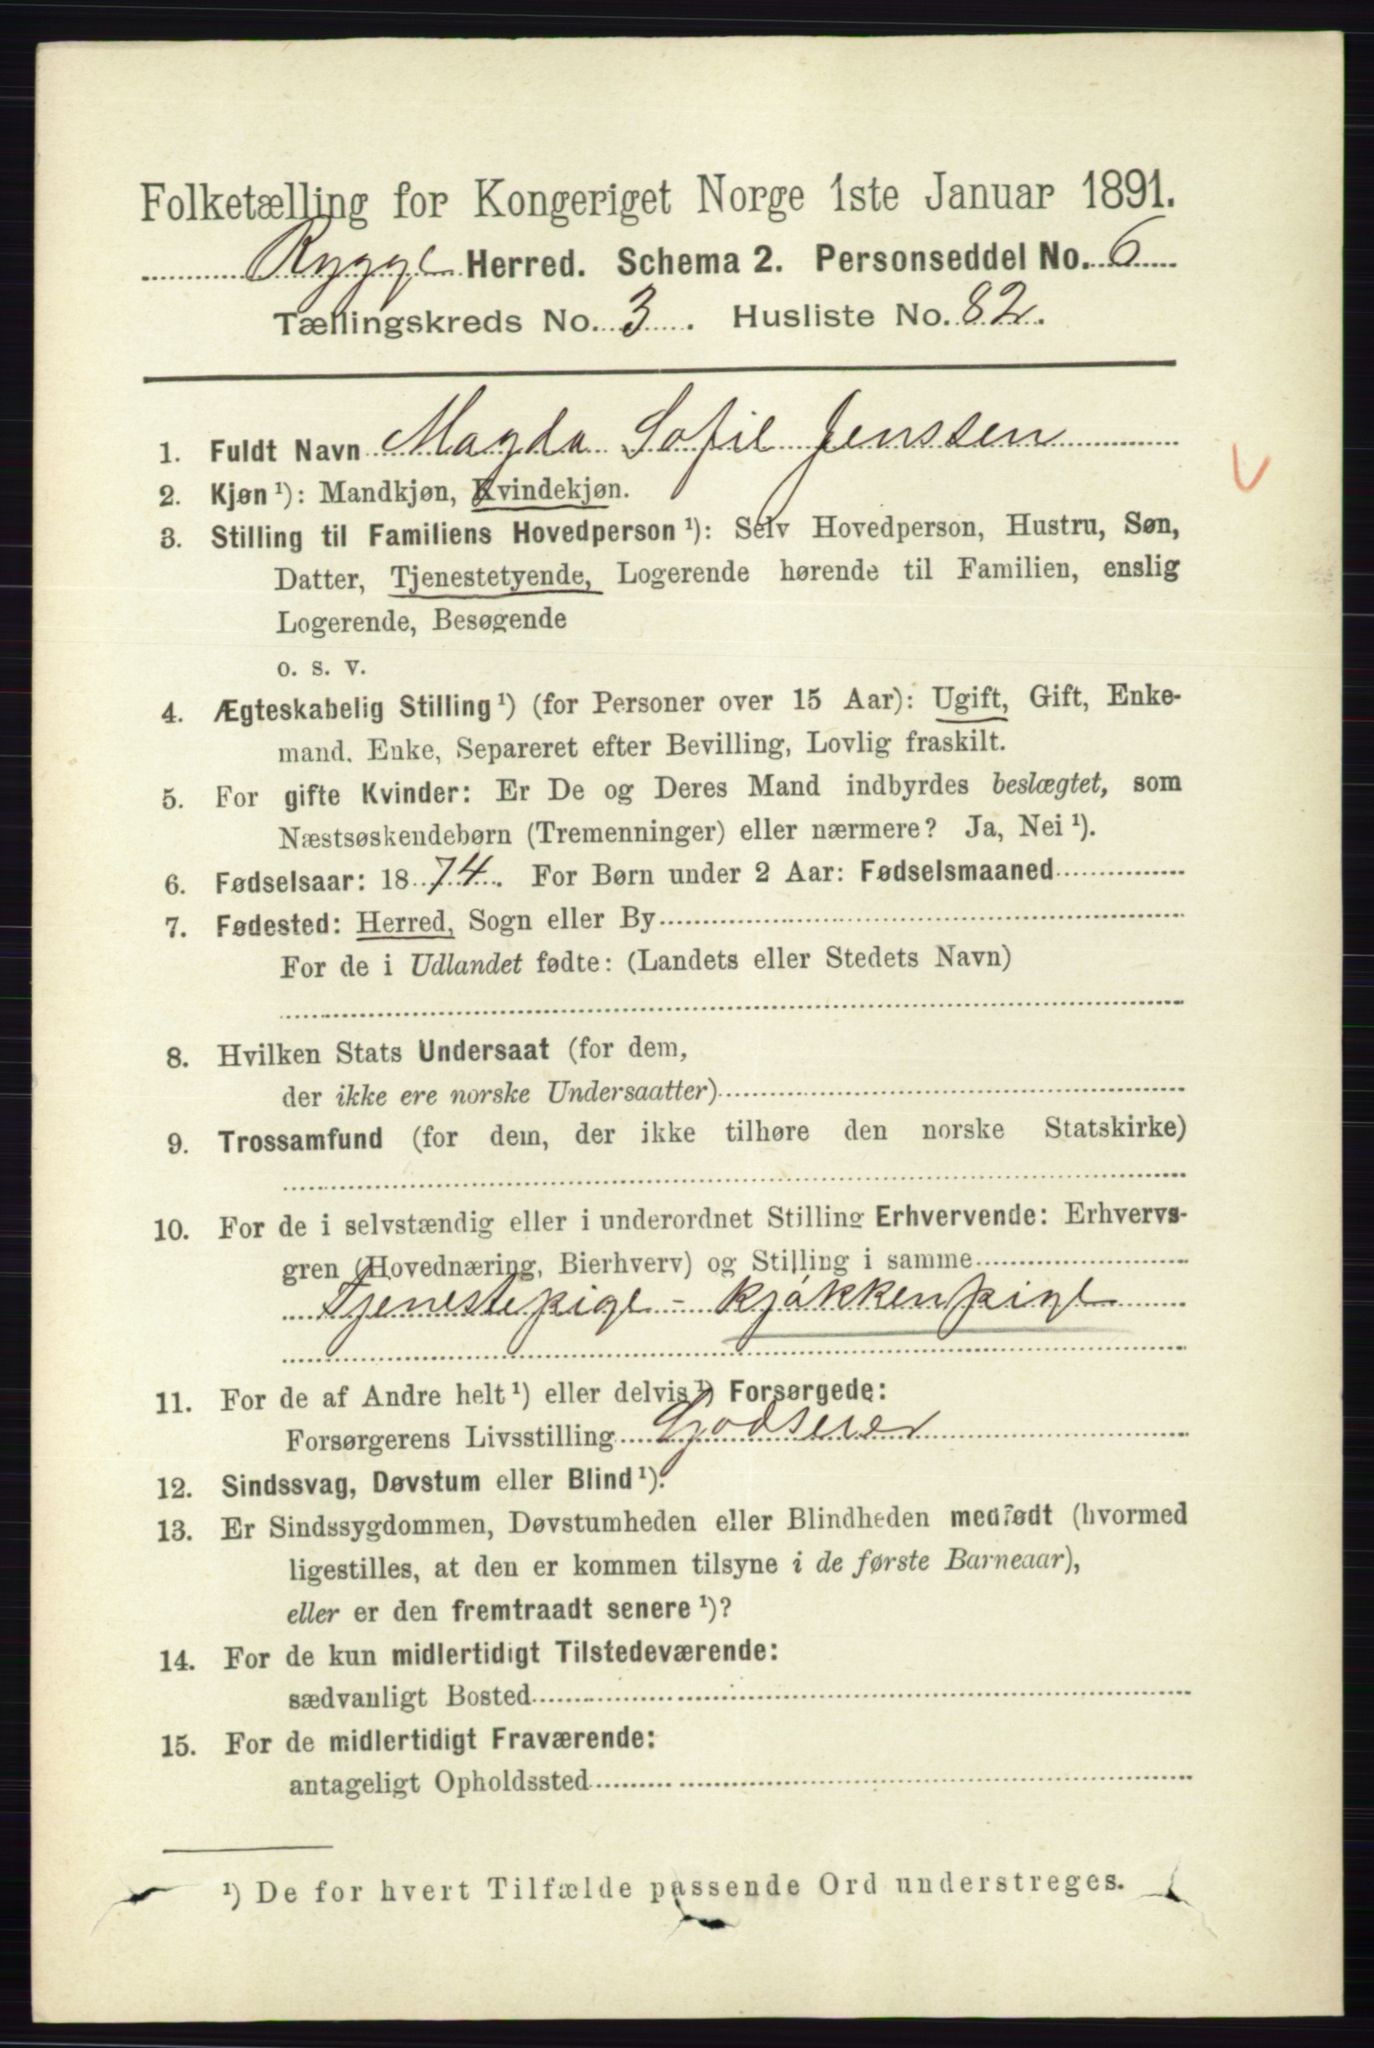 Folketælling for Kongeriget Norge 1ste Januar 1891.
Rygge Herred. Schema 2. Personseddel No. 6
Tællingskreds No. 3. Husliste No. 82.
1. Fuldt Navn Magda Sofie Jenssen
2. Kjøn ¹): Mandkjøn, Kvindekjøn.
3. Stilling til Familiens Hovedperson ¹): Selv Hovedperson, Hustru, Søn,
Datter, Tjenestetyende, Logerende hørende til Familien, enslig
Logerende, Besøgende
o. s. v.
4. Ægteskabelig Stilling ¹) (for Personer over 15 Aar): Ugift, Gift, Enke-
mand, Enke, Separeret efter Bevilling, Lovlig fraskilt.
5. For gifte Kvinder: Er De og Deres Mand indbyrdes beslægtet, som
Næstsøskendebørn (Tremenninger) eller nærmere? Ja, Nei ¹).
6. Fødselsaar: 1874. For Børn under 2 Aar: Fødselsmaaned
7. Fødested: Herred, Sogn eller By
For de i Udlandet fødte: (Landets eller Stedets Navn)
8. Hvilken Stats Undersaat (for dem,
der ikke ere norske Undersaatter)
9. Trossamfund (for dem, der ikke tilhøre den norske Statskirke)
10. For de i selvstændig eller i underordnet Stilling Erhvervende: Erhvervs-
gren (Hovednæring, Bierhverv) og Stilling i samme
Tjenestepige - kjøkkenpige
11. For de af Andre helt ¹) eller delvis ¹) Forsørgede:
Forsørgerens Livsstilling Godseier
12. Sindssvag, Døvstum eller Blind ¹).
13. Er Sindssygdommen, Døvstumheden eller Blindheden medfødt (hvormed
ligestilles, at den er kommen tilsyne i de første Barneaar),
eller er den fremtraadt senere ¹)?
14. For de kun midlertidigt Tilstedeværende:
sædvanligt Bosted
15. For de midlertidigt Fraværende:
antageligt Opholdssted
¹) De for hvert Tilfælde passende Ord understreges.